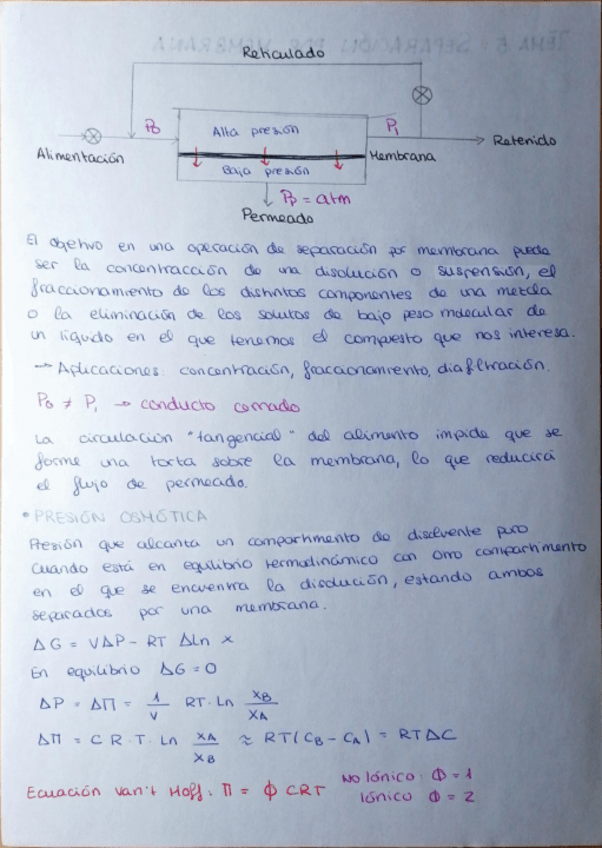 Reticulado
P₀
Alta presión
P₁
Retenido
Alimentación
Membrana
Baja presión
Pp = atm
Permeado
El objetivo en una operación de separación por membrana puede
ser la concentracción de una disolución o suspensión, el
fraccionamiento de los distintos componentes de una mezcla
o la eliminación de los solutos de bajo peso molecular de
un líquido en el que tenemos el compuesto que nos interesa.
→ Aplicaciones: concentración, fraccionamiento, diafiltración.
P₀ ≠ P₁ → conducto cerrado
La circulación "tangencial" del alimento impide que se
forme una torta sobre la membrana, lo que reducirá
el flujo de permeado.
• PRESIÓN OSMÓTICA
Presión que alcanza un compartimento de disolvente puro
cuando está en equilibrio termodinámico con otro compartimento
en el que se encuentra la disolución, estando ambos
separados por una membrana.
ΔG = VΔP - RT ΔLn x
En equilibrio ΔG = 0
ΔP = ΔΠ = 1/V RT·Ln XB/XA
ΔΠ = C R·T·Ln XA/XB ≈ RT(CB - CA) = RTΔC
Ecuación Van't Hoff: Π = ϕ CRT
No Iónico: ϕ = 1
Iónico ϕ = 2